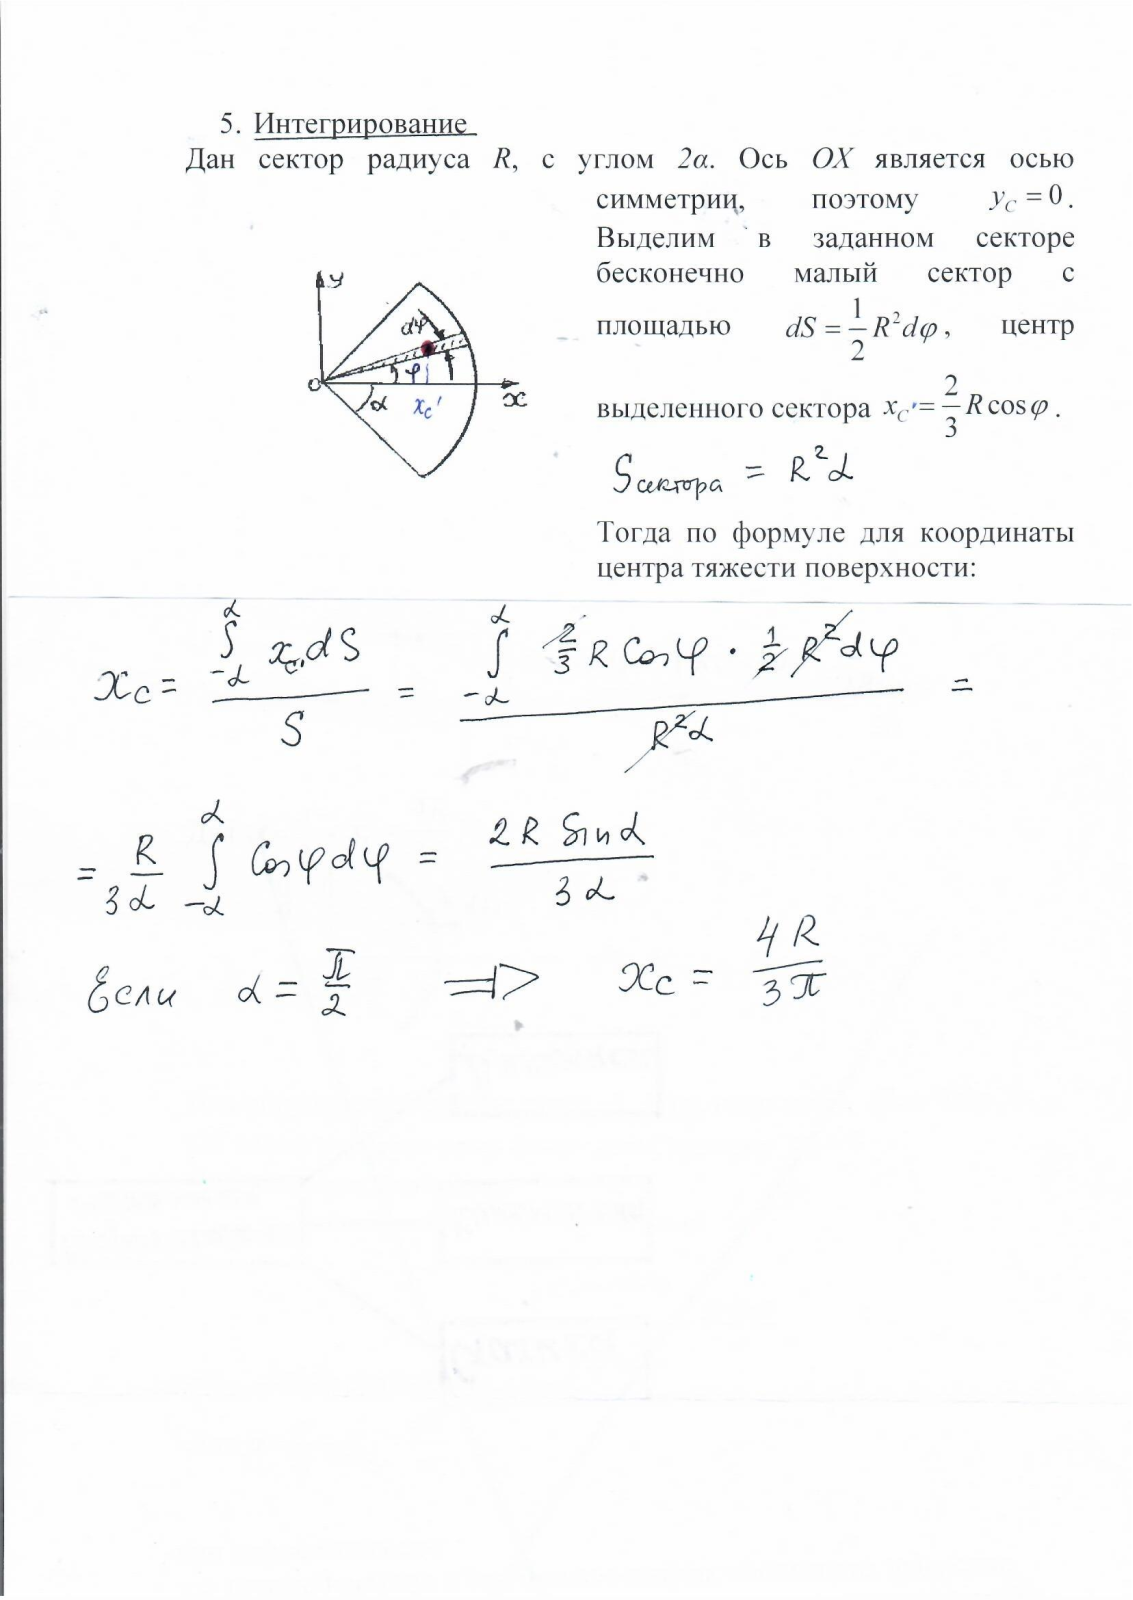 5. Интегрирование
Дан сектор радиуса R, с углом 2α. Ось OX является осью
симметрии, поэтому y_C = 0.
Выделим в заданном секторе
бесконечно малый сектор с
площадью dS = 1/2 R²dφ, центр
выделенного сектора x_C' = 2/3 R cos φ.
S сектора = R²α
Тогда по формуле для координаты
центра тяжести поверхности:
y
dφ
φ
O
α
x_C'
x
x_C = ∫_{-α}^{α} x_C' dS / S = ∫_{-α}^{α} 2/3 R Cos φ · 1/2 R² dφ / R²α =
= R/3α ∫_{-α}^{α} Cos φ dφ = 2R Sin α / 3α
Если α = π/2 ⇒ x_C = 4R/3π